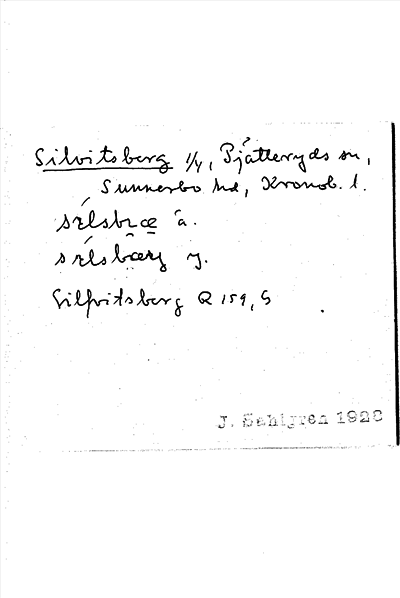 Silvitsberg 1/4, Pjätteryds sn,
Sunnerbo hd, Kronob. l.
sɪ́lsbræ ä.
sɪ́lsbærj y.
Silfvitsberg R 159, S
J. Sahlgren 1928